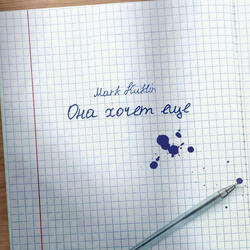 Mark
Она хочет еще